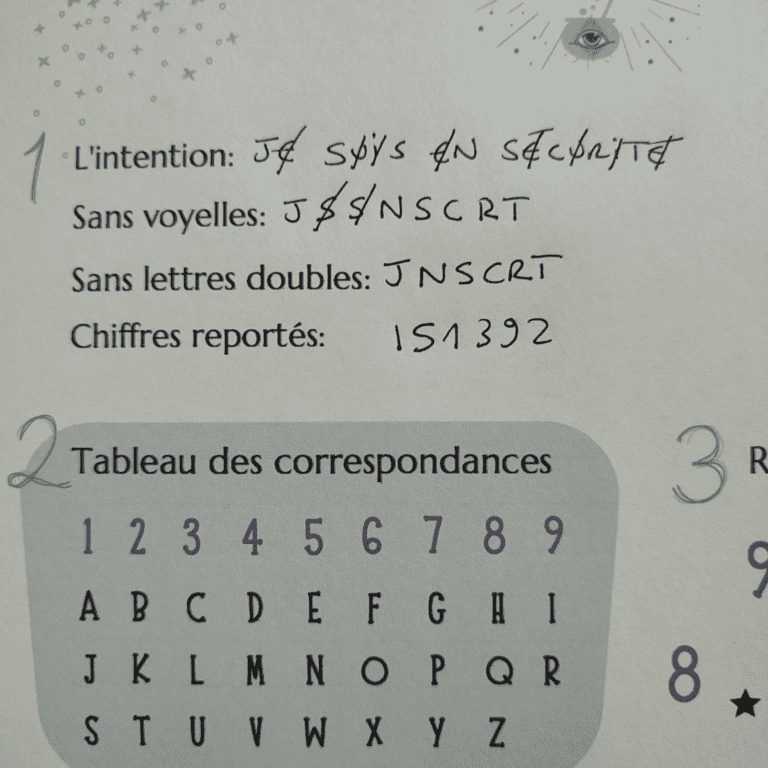 1 L'intention: JE SUIS EN SÉCURITÉ
Sans voyelles: J S S N S C R T
Sans lettres doubles: J N S C R T
Chiffres reportés: 151392
2 Tableau des correspondances
3 R
1 2 3 4 5 6 7 8 9
9
A B C D E F G H I
J K L M N O P Q R
8
S T U V W X Y Z